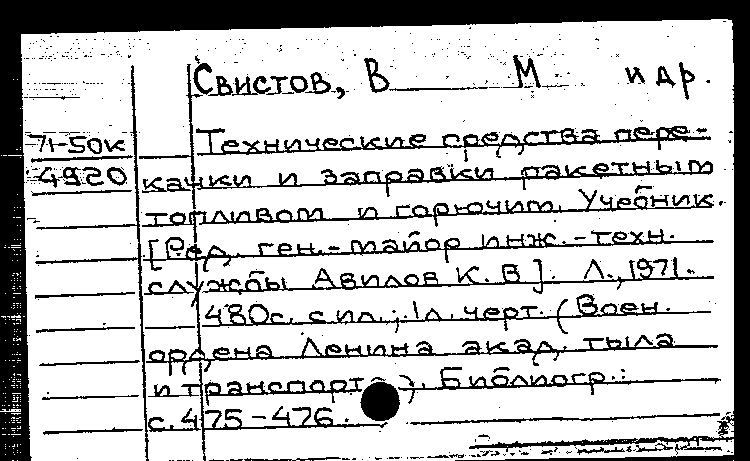 Свистов, В М и др.
71-50к Технические средства пере-
4920 качки и заправки ракетным
топливом и горючим. Учебник.
[Ред. ген.-майор инж.-техн.
службы Авилов К. В]. Л., 1971.
480с. с ил.; 1л. черт. (Воен.
ордена Ленина акад. тыла
и транспорта). Библиогр.:
с. 475-476.